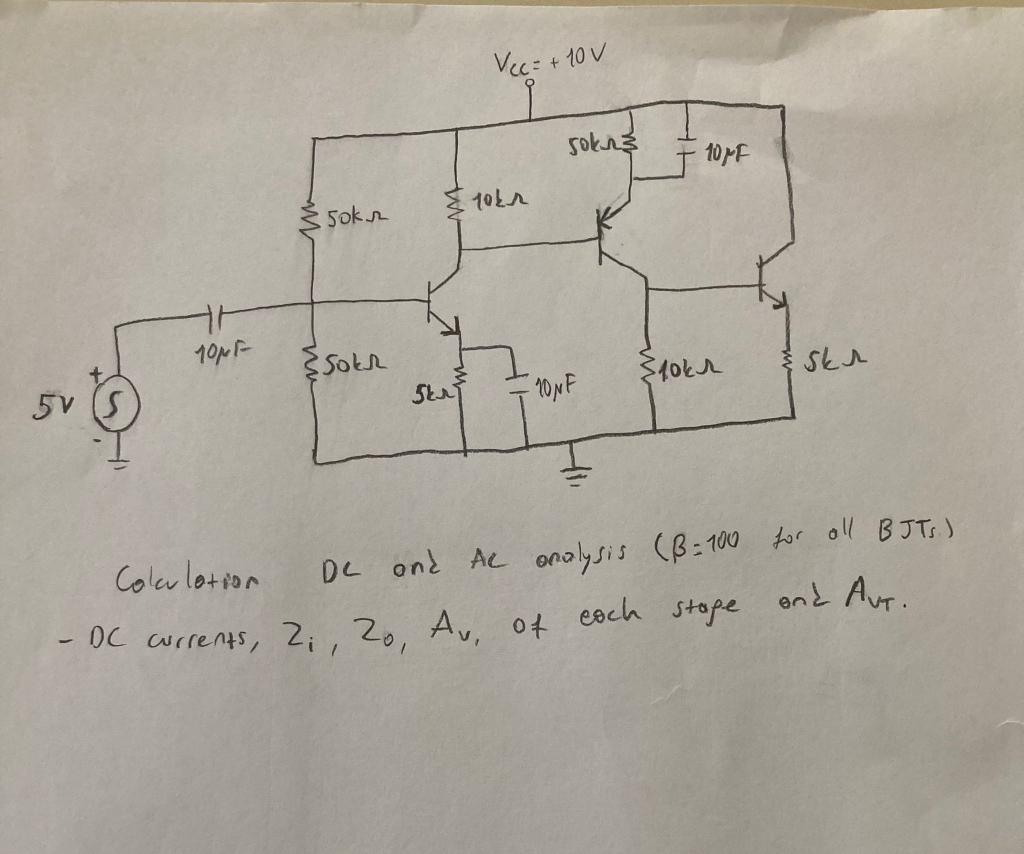 Vcc = +10V
50kΩ
10μF
50kΩ
10kΩ
10μF
50kΩ
5kΩ
10μF
10kΩ
5kΩ
5V
+
S
-
Calculation DC and AC analysis (β=100 for all BJTs)
- DC currents, Zi, Zo, Av, of each stage and AvT.